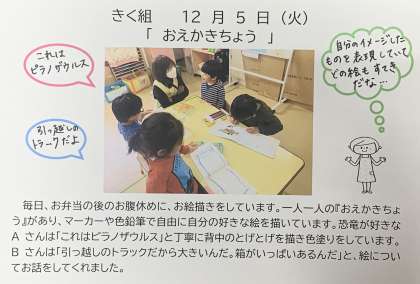 きく組　　12 月 5 日（火）
「 おえかきちょう 」
これは
ピラノザウルス
引っ越しの
トラークだよ
自分のイメージした
ものを表現していて
どの絵もすてき
だな…
毎日、お弁当の後のお腹休めに、お絵描きをしています。一人一人の『おえかきちょ
う』があり、マーカーや色鉛筆で自由に自分の好きな絵を描いています。恐竜が好きな
A さんは「これはピラノザウルス」と丁寧に背中のとげとげを描き色塗りをしています。
B さんは「引っ越しのトラックだから大きいんだ。箱がいっぱいあるんだ」と、絵につい
てお話をしてくれました。